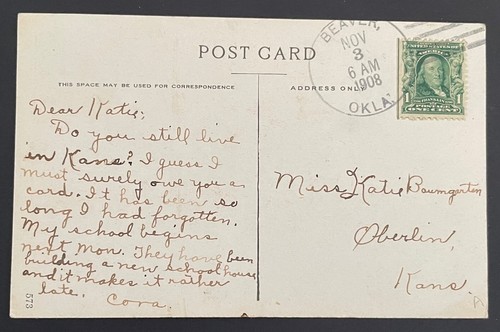 POST CARD
THIS SPACE MAY BE USED FOR CORRESPONDENCE
ADDRESS ONLY
BEAVER,
NOV
3
6 AM
1908
OKLA.
Dear Katie;
Do you still live
in Kans? I guess I
must surely owe you a
card. It has been so
long I had forgotten.
My school begins
next Mon. They have been
building a new schoolhouse
and it makes it rather
late. Cora.
Miss Katie Baumgarten
Oberlin,
Kans.
573